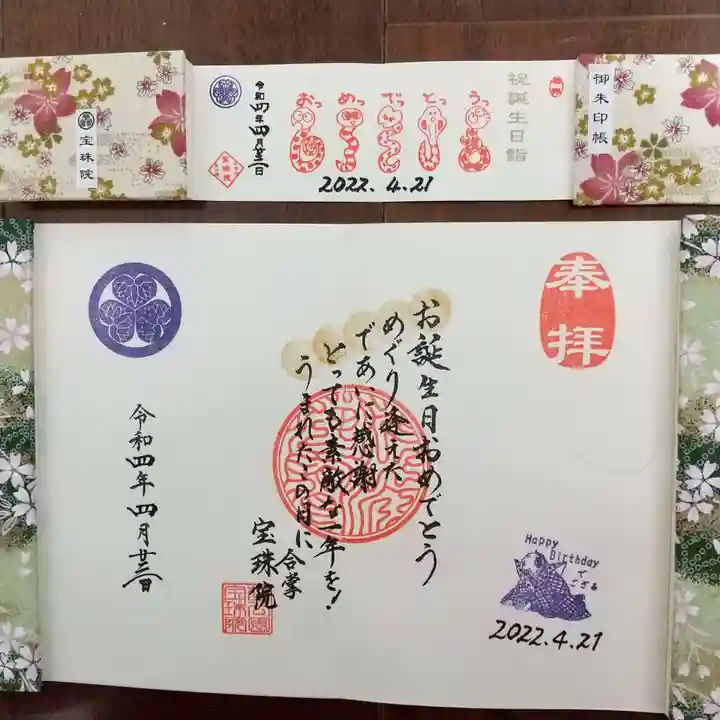 御朱印帳
祝誕生日詣
おっ
めっ
でっ
とっ
うっ
令和四年四月廿一日
2022.4.21
宝珠院
奉拝
お誕生日おめでとう
めぐり逢えた
であいに感謝
とっても素敵な一年を!
うまれたこの日に 合掌
宝珠院
令和四年四月廿一日
Happy
Birthday
で
ござる
2022.4.21